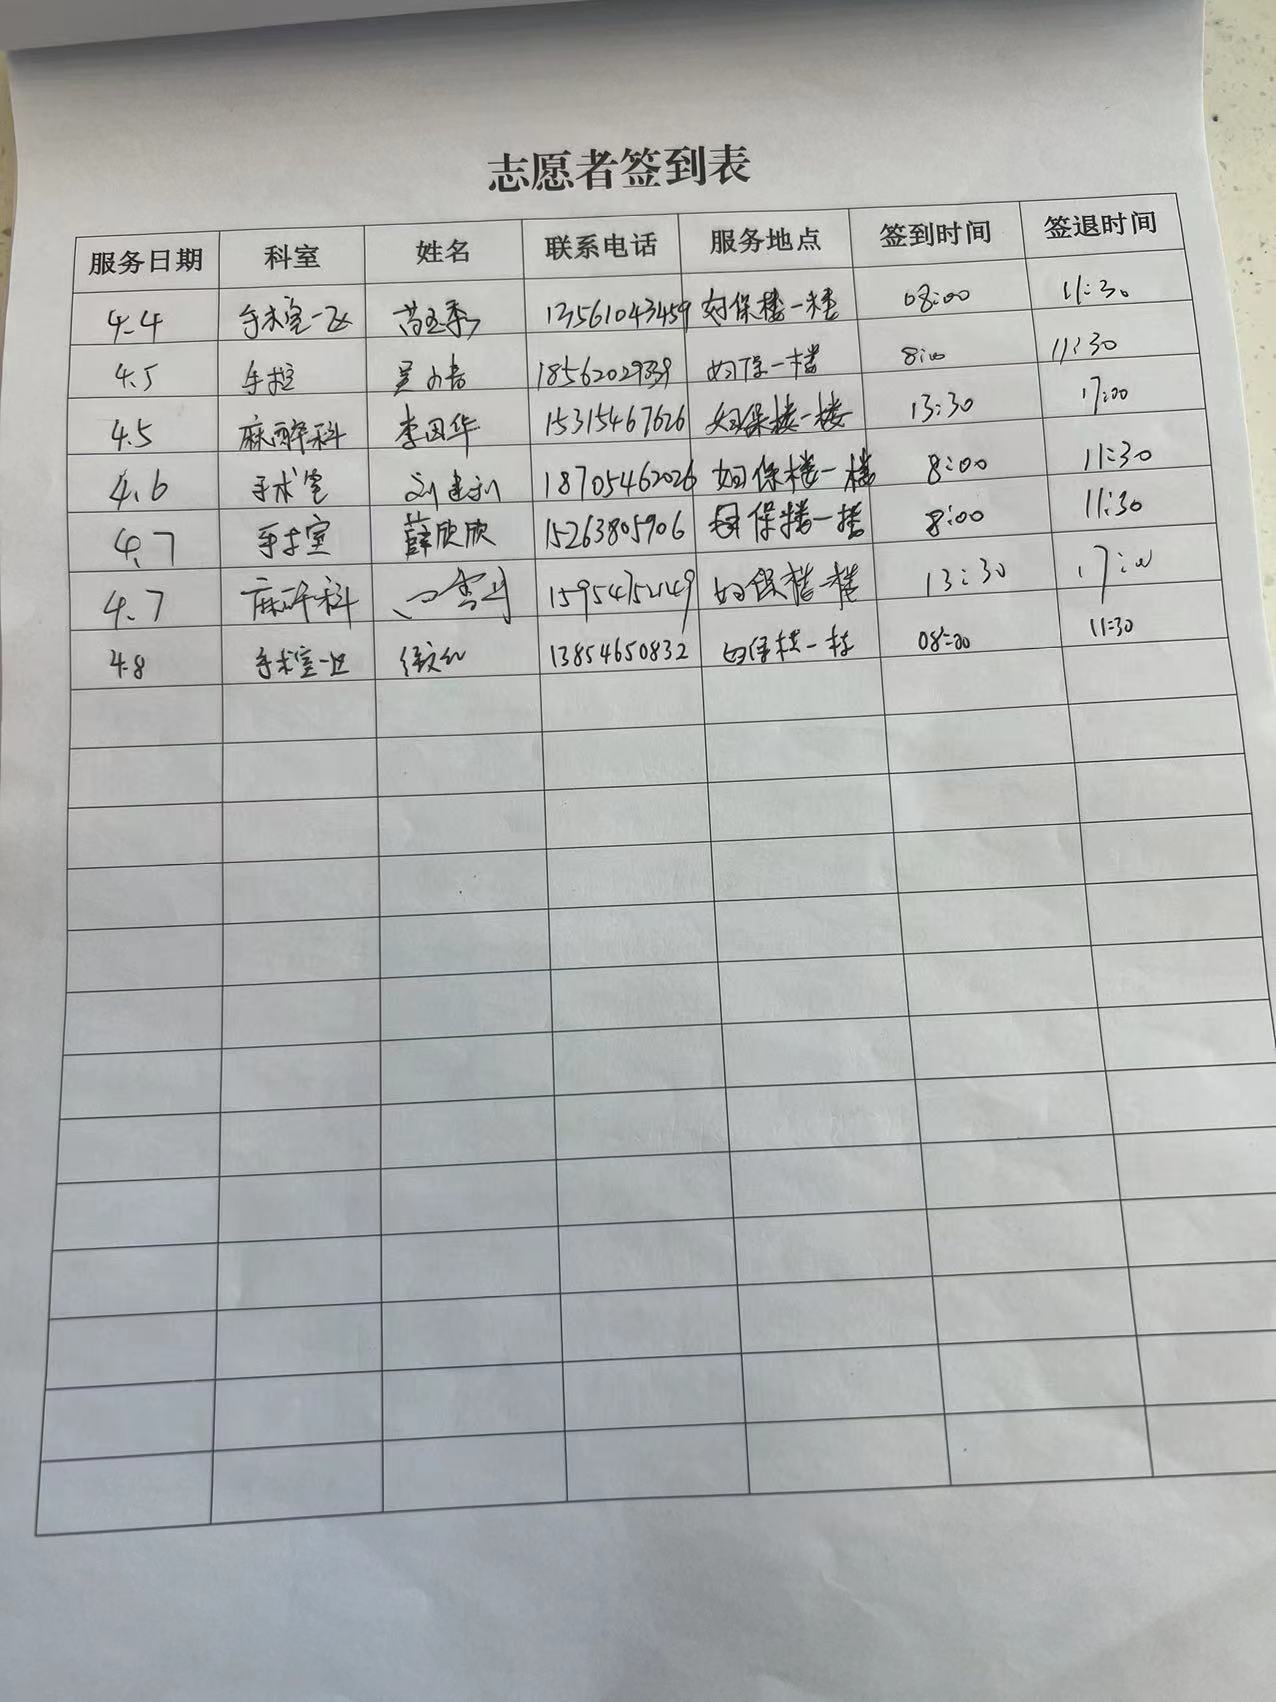 志愿者签到表
服务日期 科室 姓名 联系电话 服务地点 签到时间 签退时间
4.4 手术室一区 13561043459 妇保楼一楼 08:00 11:30
4.5 吴 妇保一楼 8:00 11:30
4.5 麻醉科 李国华 15315467626 妇保楼一楼 13:30 17:00
4.6 手术室 刘建利 18705462026 妇保楼一楼 8:00 11:30
4.7 手术室 薛欣欣 15263805906 保楼一楼 8:00 11:30
4.7 麻醉科 妇保楼一楼 13:30 17:00
4.8 手术室一区 13854650832 妇保楼一楼 08:00 11:30